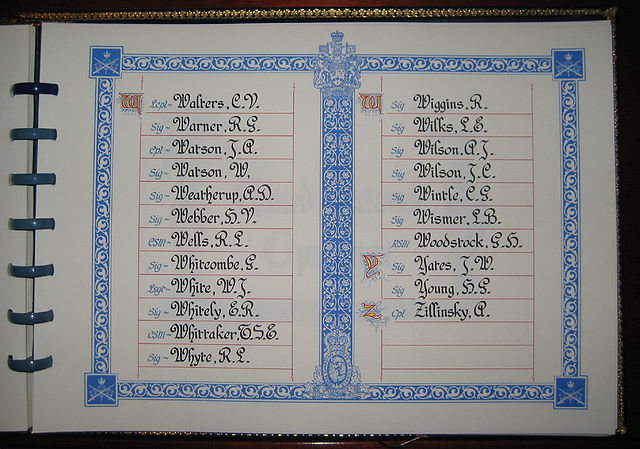 W Lcpl~ Walters, C.V.
Sig~ Warner, R.G.
Cpl~ Watson, J.A.
Sig~ Watson, W,
Sig~ Weatherup, A.D.
Sig~ Webber, H.V.
CSM~ Wells, R.L.
Sig~ Whitcombe, G.
Lsgt~ White, W.J.
Sig~ Whitely, E.R.
CSM~ Whittaker, T.S.E.
Sig~ Whyte, R.L.
W Sig Wiggins, R.
Sig Wilks, L.E.
Sig Wilson, A.J.
Sig Wilson, J.C.
Sig Wintle, C.G.
Sig Wismer, L.B.
RSM Woodstock, G.H.
Y Sig Yates, J.W.
Sig Young, H.G.
Z Cpl Zillinsky, A.